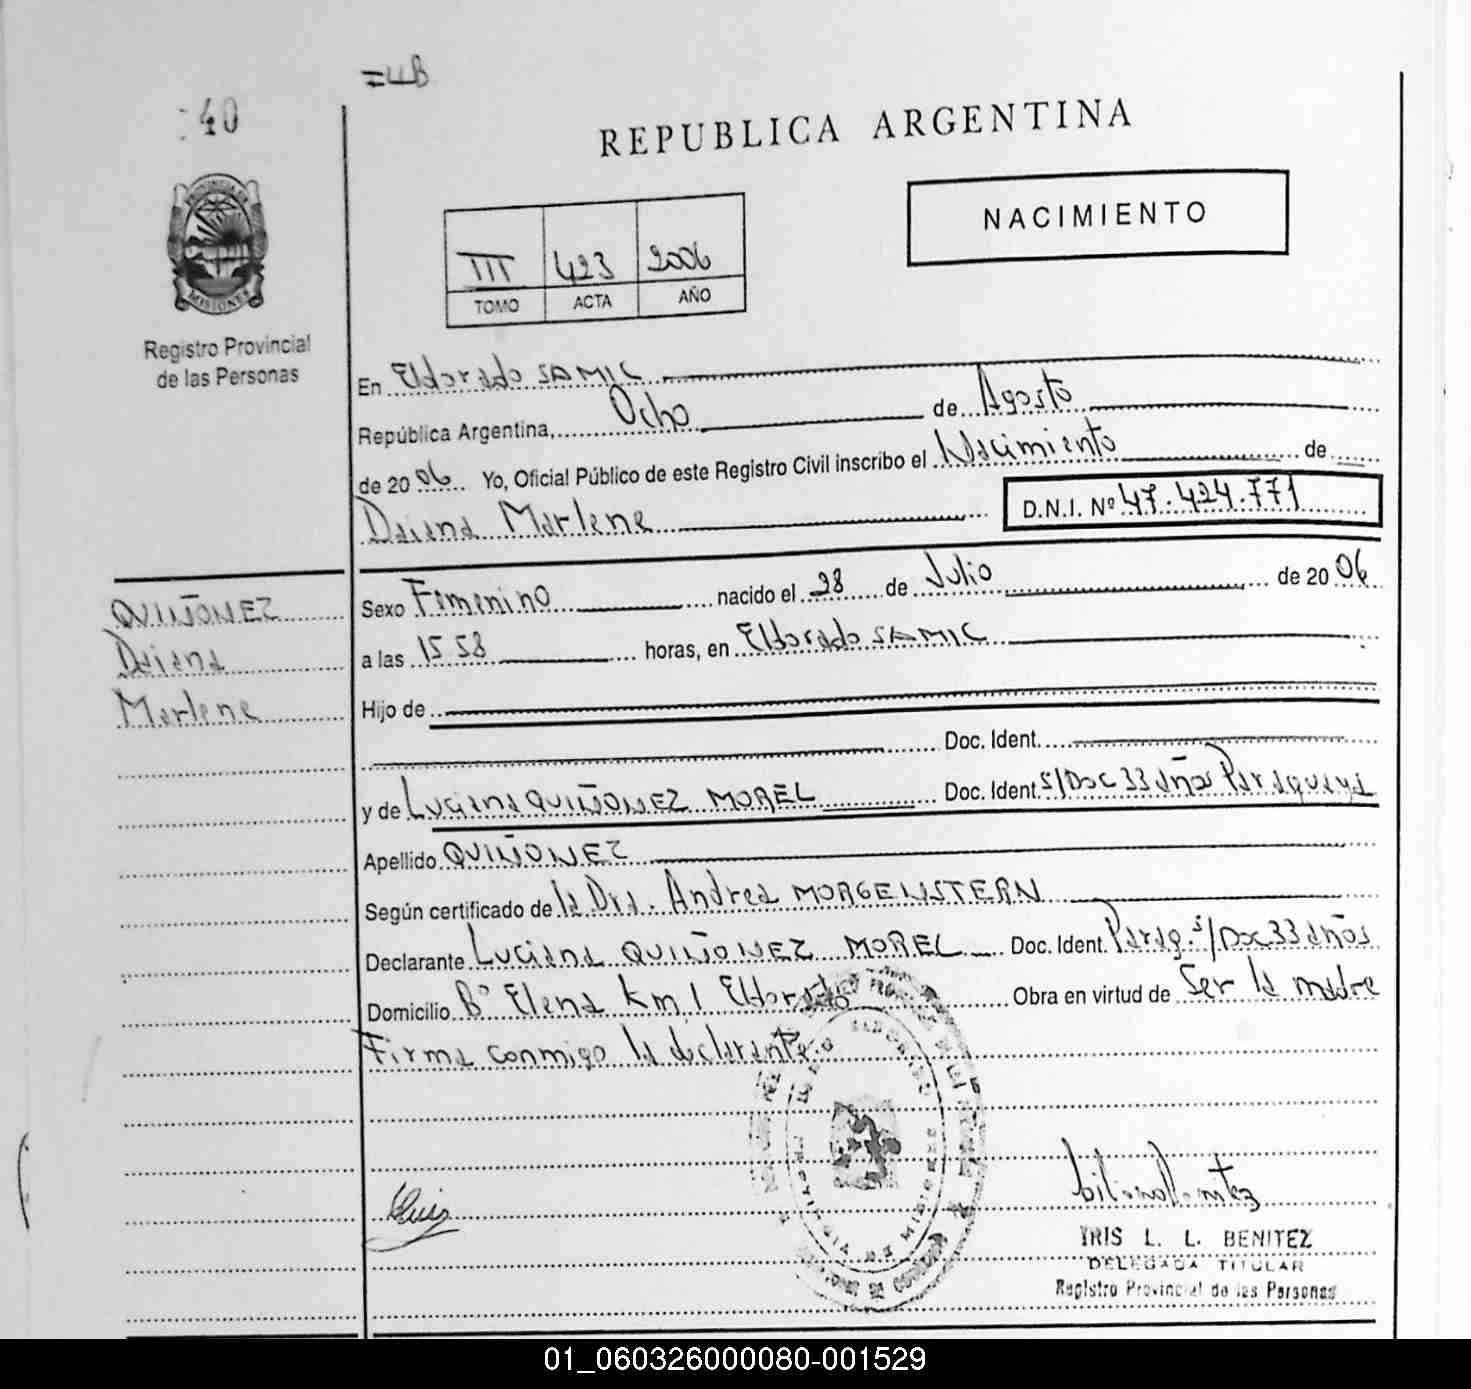 =4B
40
REPUBLICA ARGENTINA
NACIMIENTO
III 423 2006
TOMO ACTA AÑO
PROVINCIA DE
MISIONES
Registro Provincial
de las Personas
En Eldorado SAMIC
República Argentina, Ocho de Agosto
de 2006 Yo, Oficial Público de este Registro Civil inscribo el Nacimiento de
Daiana Marlene D.N.I. Nº 47.424.771
QUIÑONEZ
Daiana
Marlene
Sexo Femenino nacido el 28 de Julio de 2006
a las 15 58 horas, en Eldorado SAMIC
Hijo de
Doc. Ident.
y de Luciana QUIÑONEZ MOREL Doc. Ident. S/Doc 33 años Paraguaya
Apellido QUIÑONEZ
Según certificado de la Dra. Andrea MORGENSTERN
Declarante Luciana QUIÑONEZ MOREL Doc. Ident. Parag. S/Doc 33 años
Domicilio Bº Elena Km 1 Eldorado Obra en virtud de Ser la madre
Firma conmigo la declarante.
YRIS L. L. BENITEZ
DELEGADA TITULAR
Registro Provincial de las Personas
01_060326000080-001529